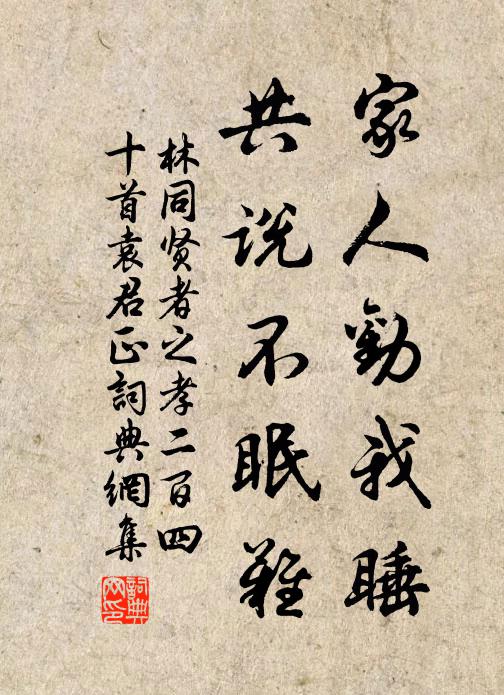 家人勸我睡
共説不眠難
林同贤者之孝二百四
十首袁君正詞典網集
詞典网印